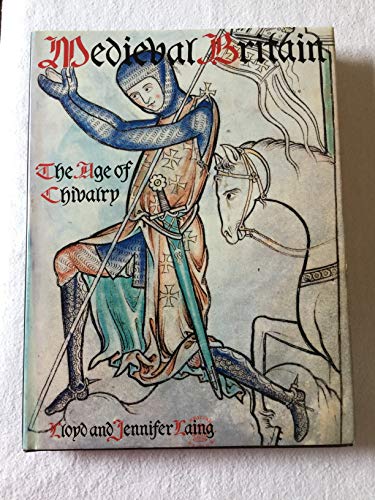 Medieval Britain
The Age of
Chivalry
Lloyd and Jennifer Laing